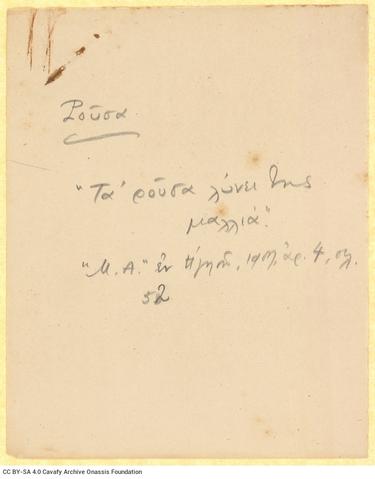 Ροῦσα
"Τα ρούσα λύνει της
μαλλιά".
"Μ. Α." ἐν Ἡγησῷ, 1907, ἀρ. 4, σελ.
52
CC BY-SA 4.0 Cavafy Archive Onassis Foundation